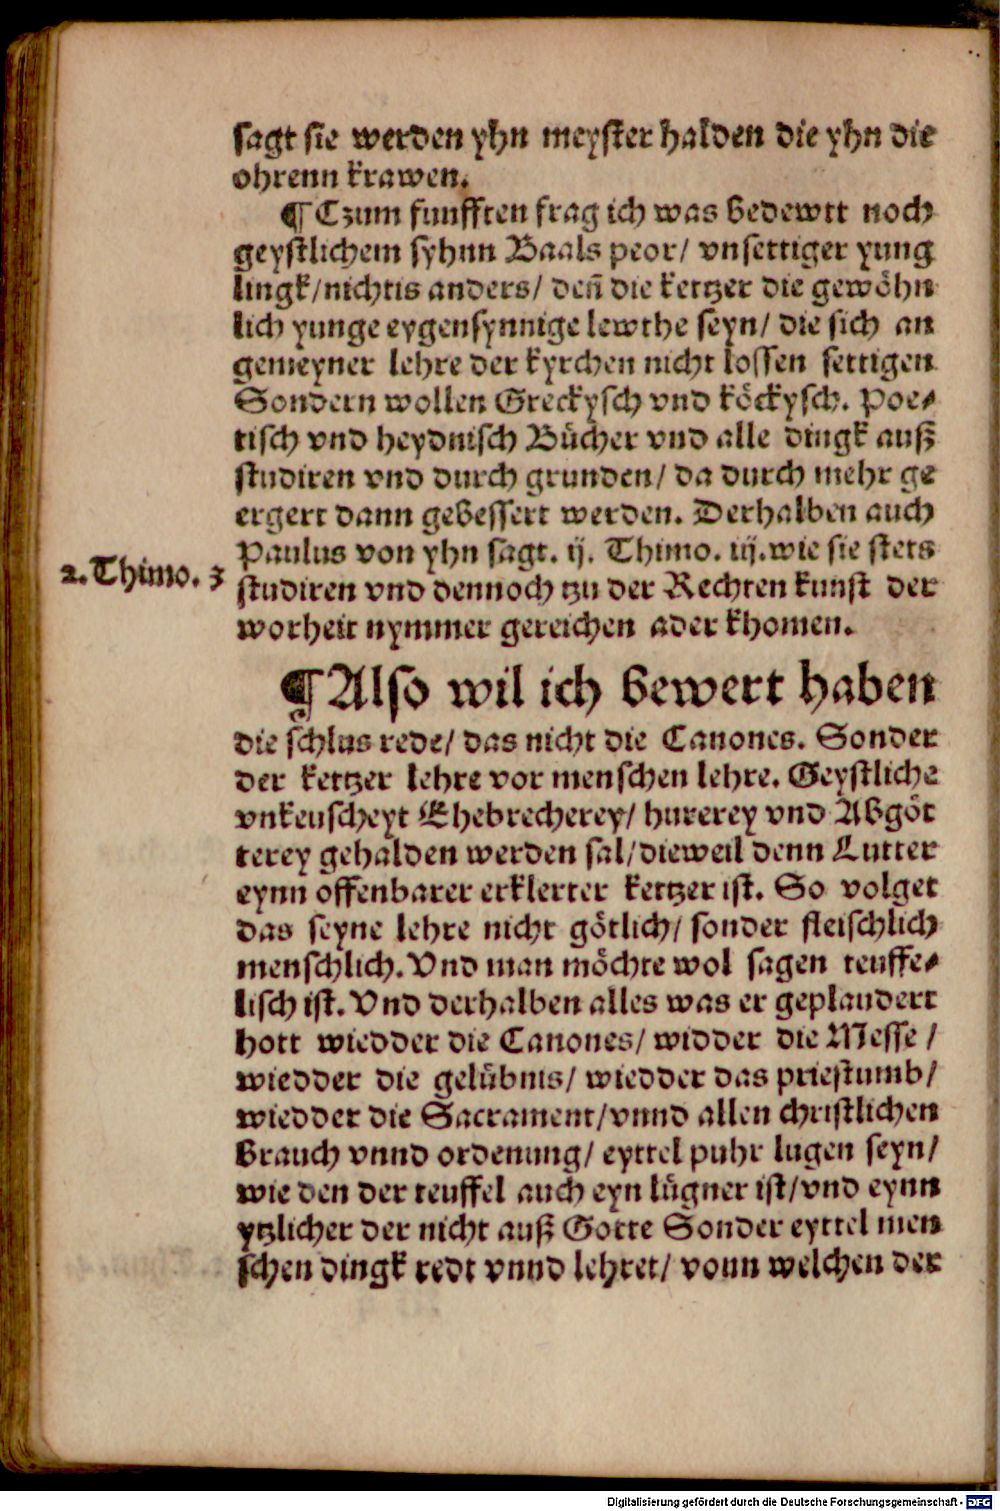 sagt sie werden yhn meyster halden die yhn die
ohrenn krawen.
¶ Czum funfften frag ich was bedewtt noch
geystlichem syhnn Baals peor/ vnsettiger yung
lingk/nichtis anders/ deñ die ketzer die gewöhn
lich yunge eygensynnige lewthe seyn/ die sich an
gemeyner lehre der kyrchen nicht lossen settigen
Sondern wollen Greckysch vnd köckysch. Poe-
tisch vnd heydnisch Bücher vnd alle dingk auß
studiren vnd durch grunden/ da durch mehr ge
ergert dann gebessert werden. Derhalben auch
Paulus von yhn sagt. ij. Thimo. iij.wie sie stets
2.Thimo. 3
studiren vnd dennoch tzu der Rechten kunst der
worheit nymmer gereichen ader khomen.
¶Also wil ich bewert haben
die schlus rede/ das nicht die Canones. Sonder
der ketzer lehre vor menschen lehre. Geystliche
vnkeuscheyt Ehebrecherey/ hurerey vnd Abgöt
terey gehalden werden sal/dieweil denn Lutter
eynn offenbarer erklerter ketzer ist. So volget
das seyne lehre nicht götlich/ sonder fleischlich
menschlich. Vnd man möchte wol sagen teuffe-
lisch ist. Vnd derhalben alles was er geplaudert
hott wiedder die Canones/ widder die Messe /
wiedder die gelübnis/ wiedder das priestumb/
wiedder die Sacrament/vnnd allen christlichen
brauch vnnd ordenung/ eyttel puhr lugen seyn/
wie den der teuffel auch eyn lügner ist/vnd eynn
ytzlicher der nicht auß Gotte Sonder eyttel men
schen dingk redt vnnd lehret/ vonn welchen der
Digitalisierung gefördert durch die Deutsche Forschungsgemeinschaft - DFG